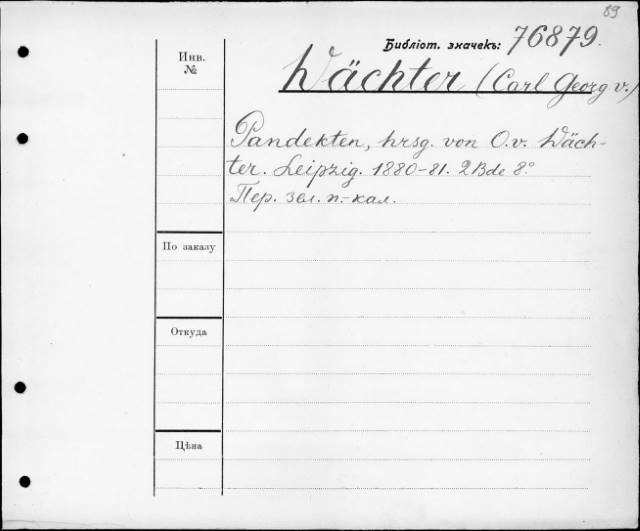 89
Библіот. значекъ: 76879.
Инв.
№
Wächter (Carl Georg v.)
Pandekten, hrsg. von O.v. Wäch-
ter. Leipzig. 1880-81. 2 Bde 8°
Пер. зел. п.-кал.
По заказу
Откуда
Цѣна